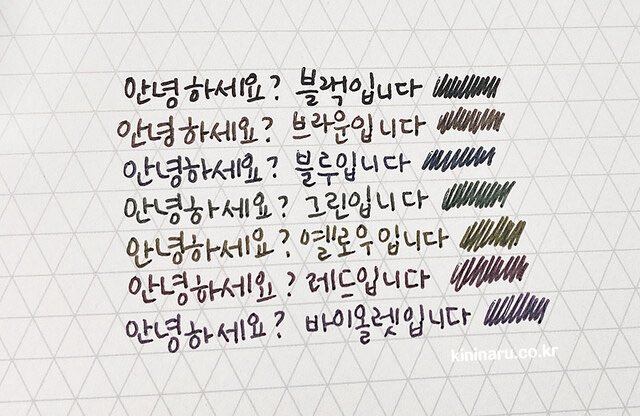 안녕하세요? 블랙입니다
안녕하세요? 브라운입니다
안녕하세요? 블루입니다
안녕하세요? 그린입니다
안녕하세요? 옐로우입니다
안녕하세요? 레드입니다
안녕하세요? 바이올렛입니다
kininaru.co.kr